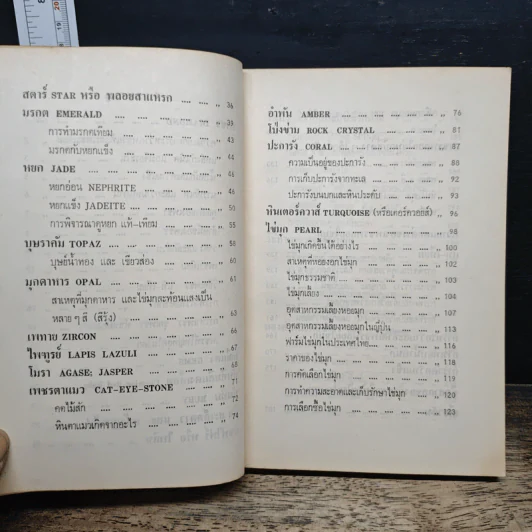 สตาร์ STAR หรือ พลอยสาแหรก .... .... ,, 36
มรกต EMERALD .... .... .... .... ,, 39
การทำมรกตเทียม .... .... .... ,, 43
มรกตกับหยกแข็ง .... .... .... ,, 44
หยก JADE .... .... .... .... .... ,, 47
หยกอ่อน NEPHRITE .... .... .... ,, 49
หยกแข็ง JADEITE .... .... .... ,, 50
การพิจารณาดูหยก แท้-เทียม .... .... ,, 55
บุษราคัม TOPAZ .... .... .... .... ,, 58
บุษย์น้ำทอง และ เขียวส่อง .... .... ,, 60
มุกดาหาร OPAL .... .... .... .... ,, 61
สาเหตุที่มุกดาหาร และไข่มุกสะท้อนแสงเป็น
หลาย ๆ สี (สีรุ้ง) .... .... .... ,, 65
เพทาย ZIRCON .... .... .... .... ,, 66
ไพฑูรย์ LAPIS LAZULI .... .... .... ,, 67
โมรา AGASE: JASPER .... .... .... ,, 68
เพชรตาแมว CAT-EYE-STONE .... .... ,, 71
คดไม้สัก .... .... .... .... ,, 72
หินตาแมวเกิดจากอะไร .... .... .... ,, 74
อำพัน AMBER .... .... .... .... .... ,, 76
โป่งข่าม ROCK CRYSTAL .... .... .... ,, 81
ปะการัง CORAL .... .... .... .... ,, 87
ความเป็นอยู่ของปะการัง .... .... .... ,, 88
การเก็บปะการังจากทะเล .... .... .... ,, 92
ปะการังบนบกและหินประดับ .... .... .... ,, 93
หินเตอร์ควาส์ TURQUOISE (หรือเตอร์ควอยส์) ,, 96
ไข่มุก PEARL .... .... .... .... .... ,, 98
ไข่มุกเกิดขึ้นได้อย่างไร .... .... .... ,, 100
สาเหตุที่หอยงอกไข่มุก .... .... .... ,, 102
ไข่มุกธรรมชาติ .... .... .... .... ,, 103
ไข่มุกเลี้ยง .... .... .... .... ,, 104
อุตสาหกรรมเลี้ยงหอยมุก .... .... .... ,, 106
อุตสาหกรรมเลี้ยงหอยมุกในญี่ปุ่น .... .... ,, 107
ฟาร์มไข่มุกในประเทศไทย .... .... .... ,, 113
ราคาของไข่มุก .... .... .... .... ,, 116
การคัดเลือกไข่มุก .... .... .... .... ,, 119
การทำความสะอาดและเก็บรักษาไข่มุก .... .... ,, 120
การเลือกซื้อไข่มุก .... .... .... .... ,, 123